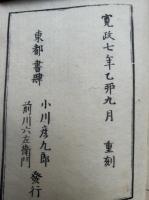 寛政七年乙卯九月 重刻
東都書肆
小川彦九郎
前川六左衛門
發行